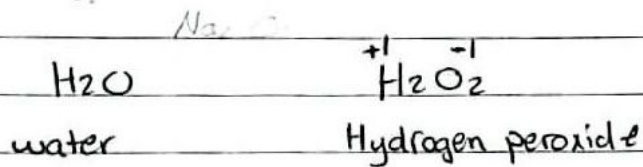 +1 -1
H2O H2O2
water Hydrogen peroxide